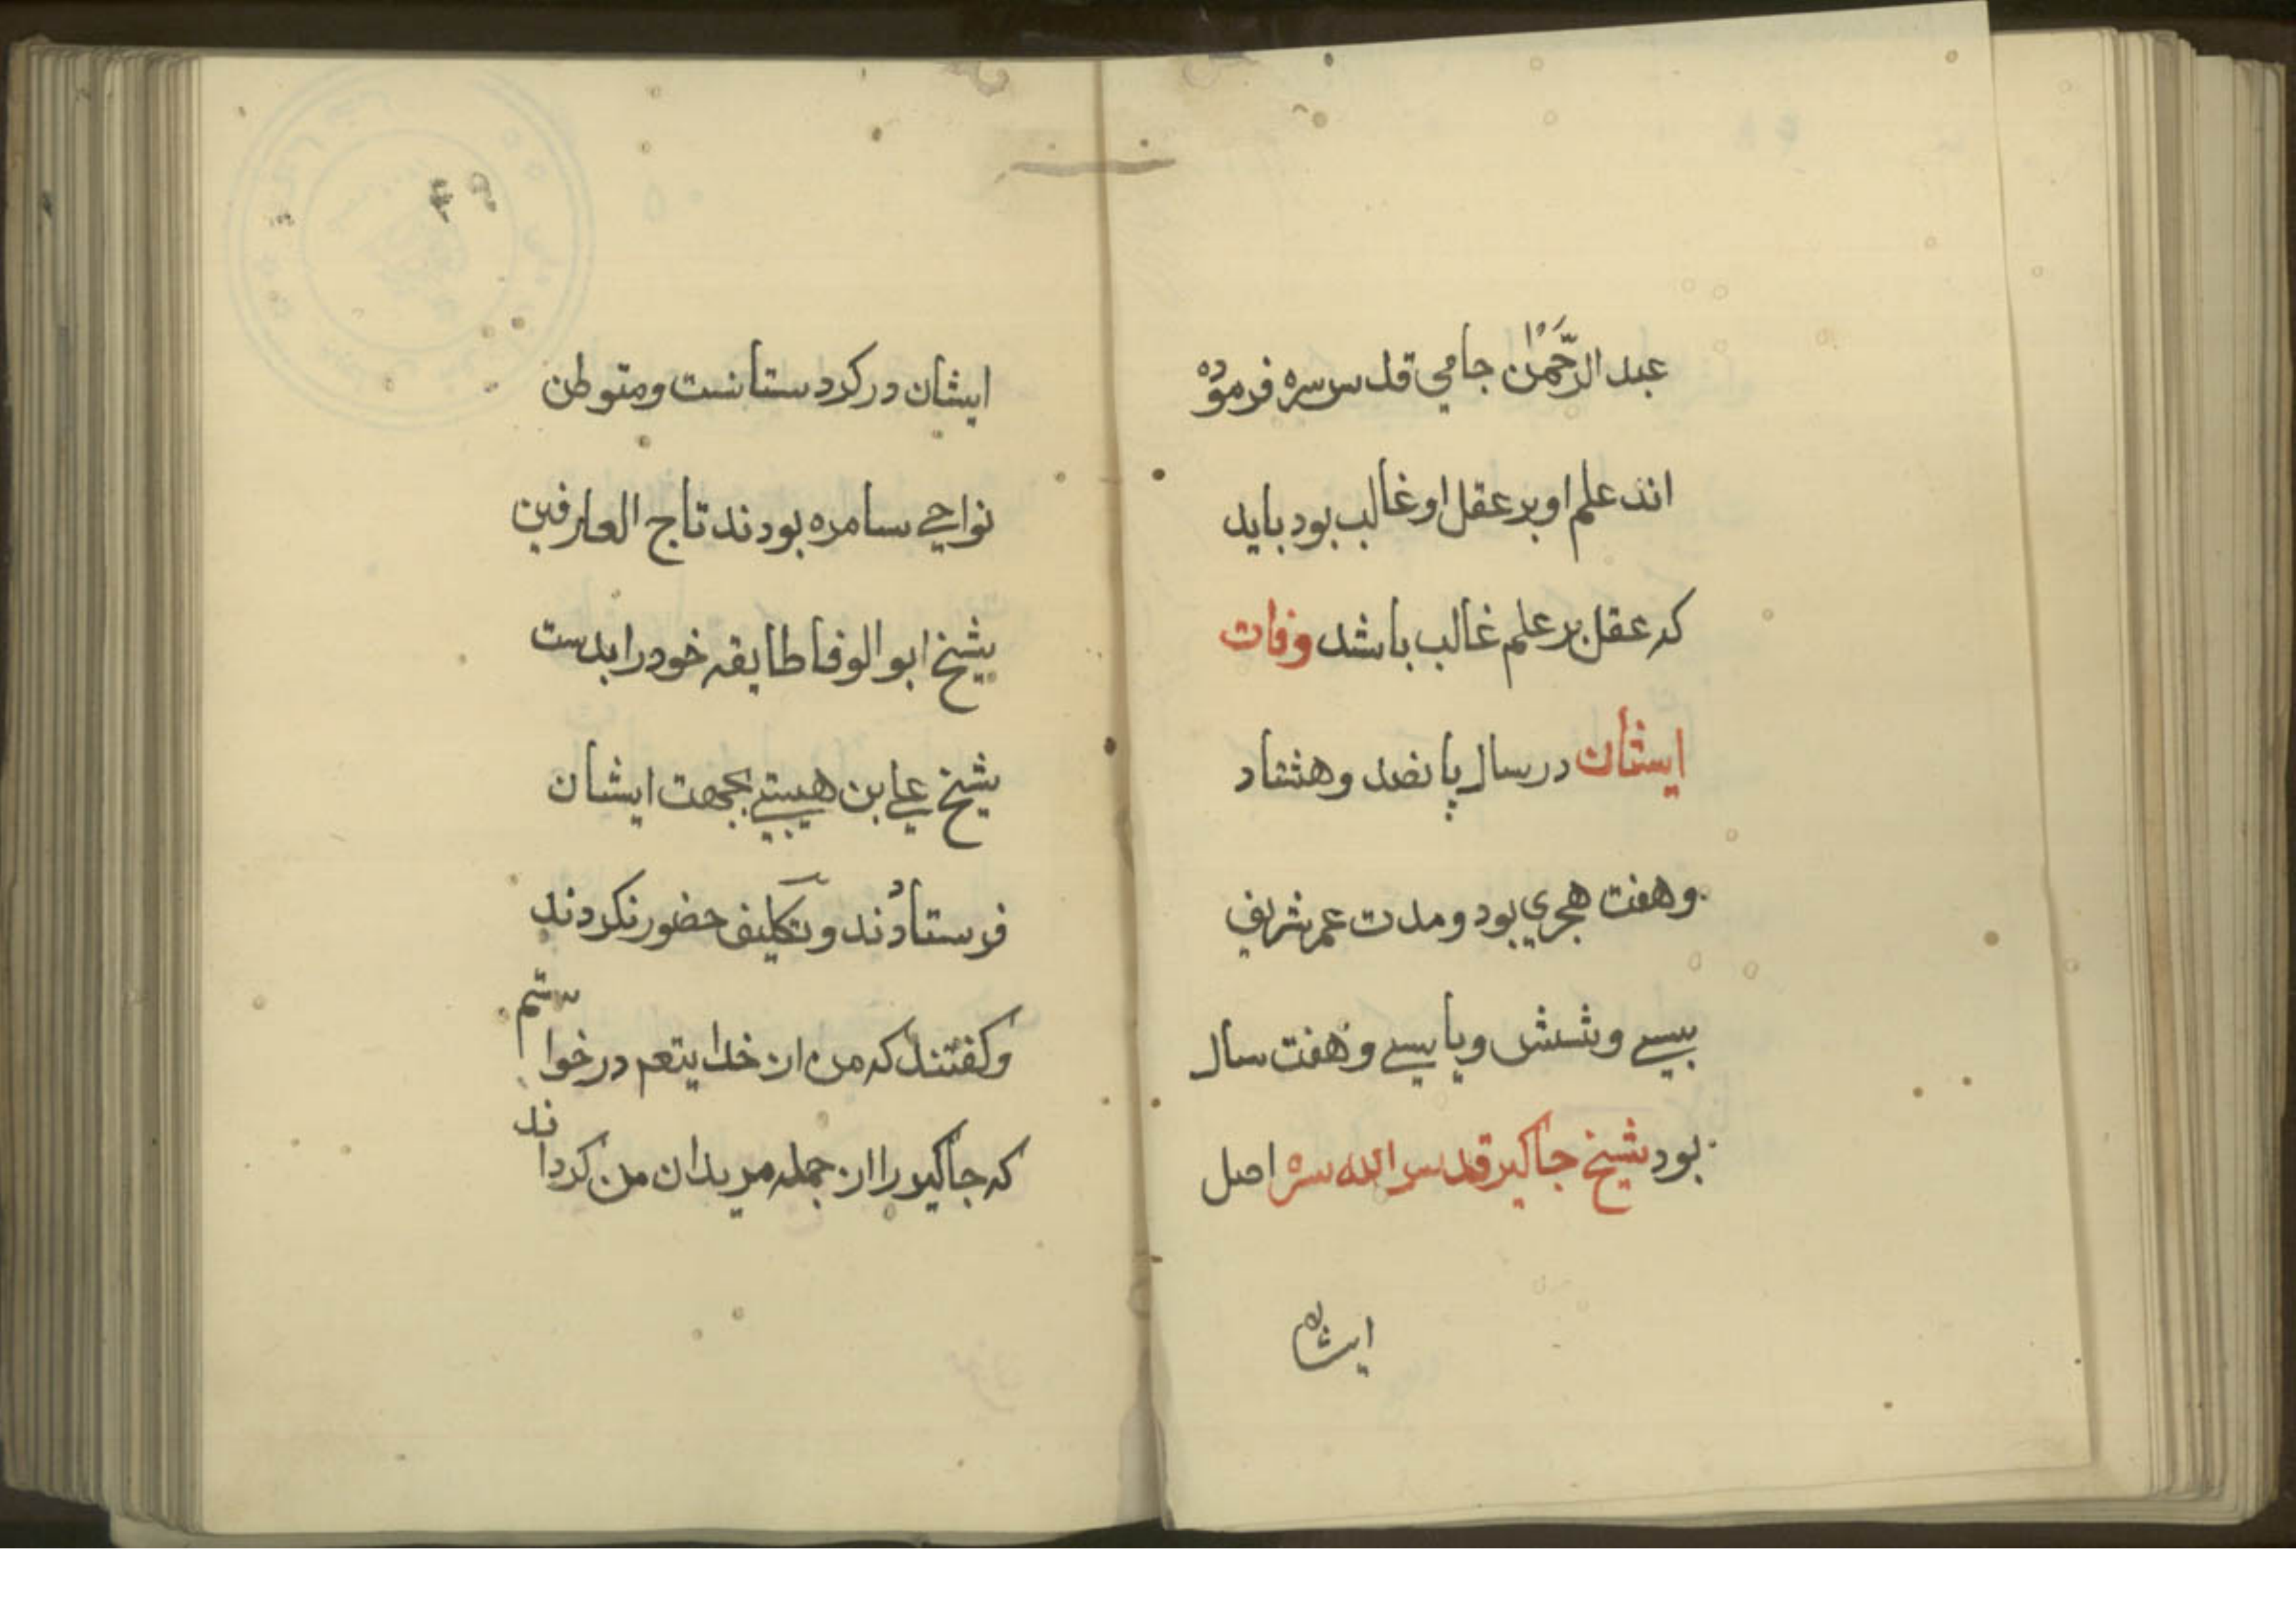 عبد الرّحمٰن جامي قدس سره فرموده
اند علم او بر عقل او غالب بود بايد
كه عقل بر علم غالب باشد وفات
ايشان در سال پانصد وهشتاد
وهفت هجري بود ومدت عمر شريف
سے وشش ويا سے وهفت سال
بود شيخ جاكير قدس الله سره اصل
ايشان
ايشان در كردستانست ومتوطن
نواحے سامره بودند تاج العارفين
شيخ ابو الوفا طايقه خود را بدست
شيخ علے بن هيتے بجهت ايشان
فرستادند وتكليف حضور نكردند
وكفتند كه من از خدايتعم درخواستم
كه جاكير را از جمله مريدان من كرداند